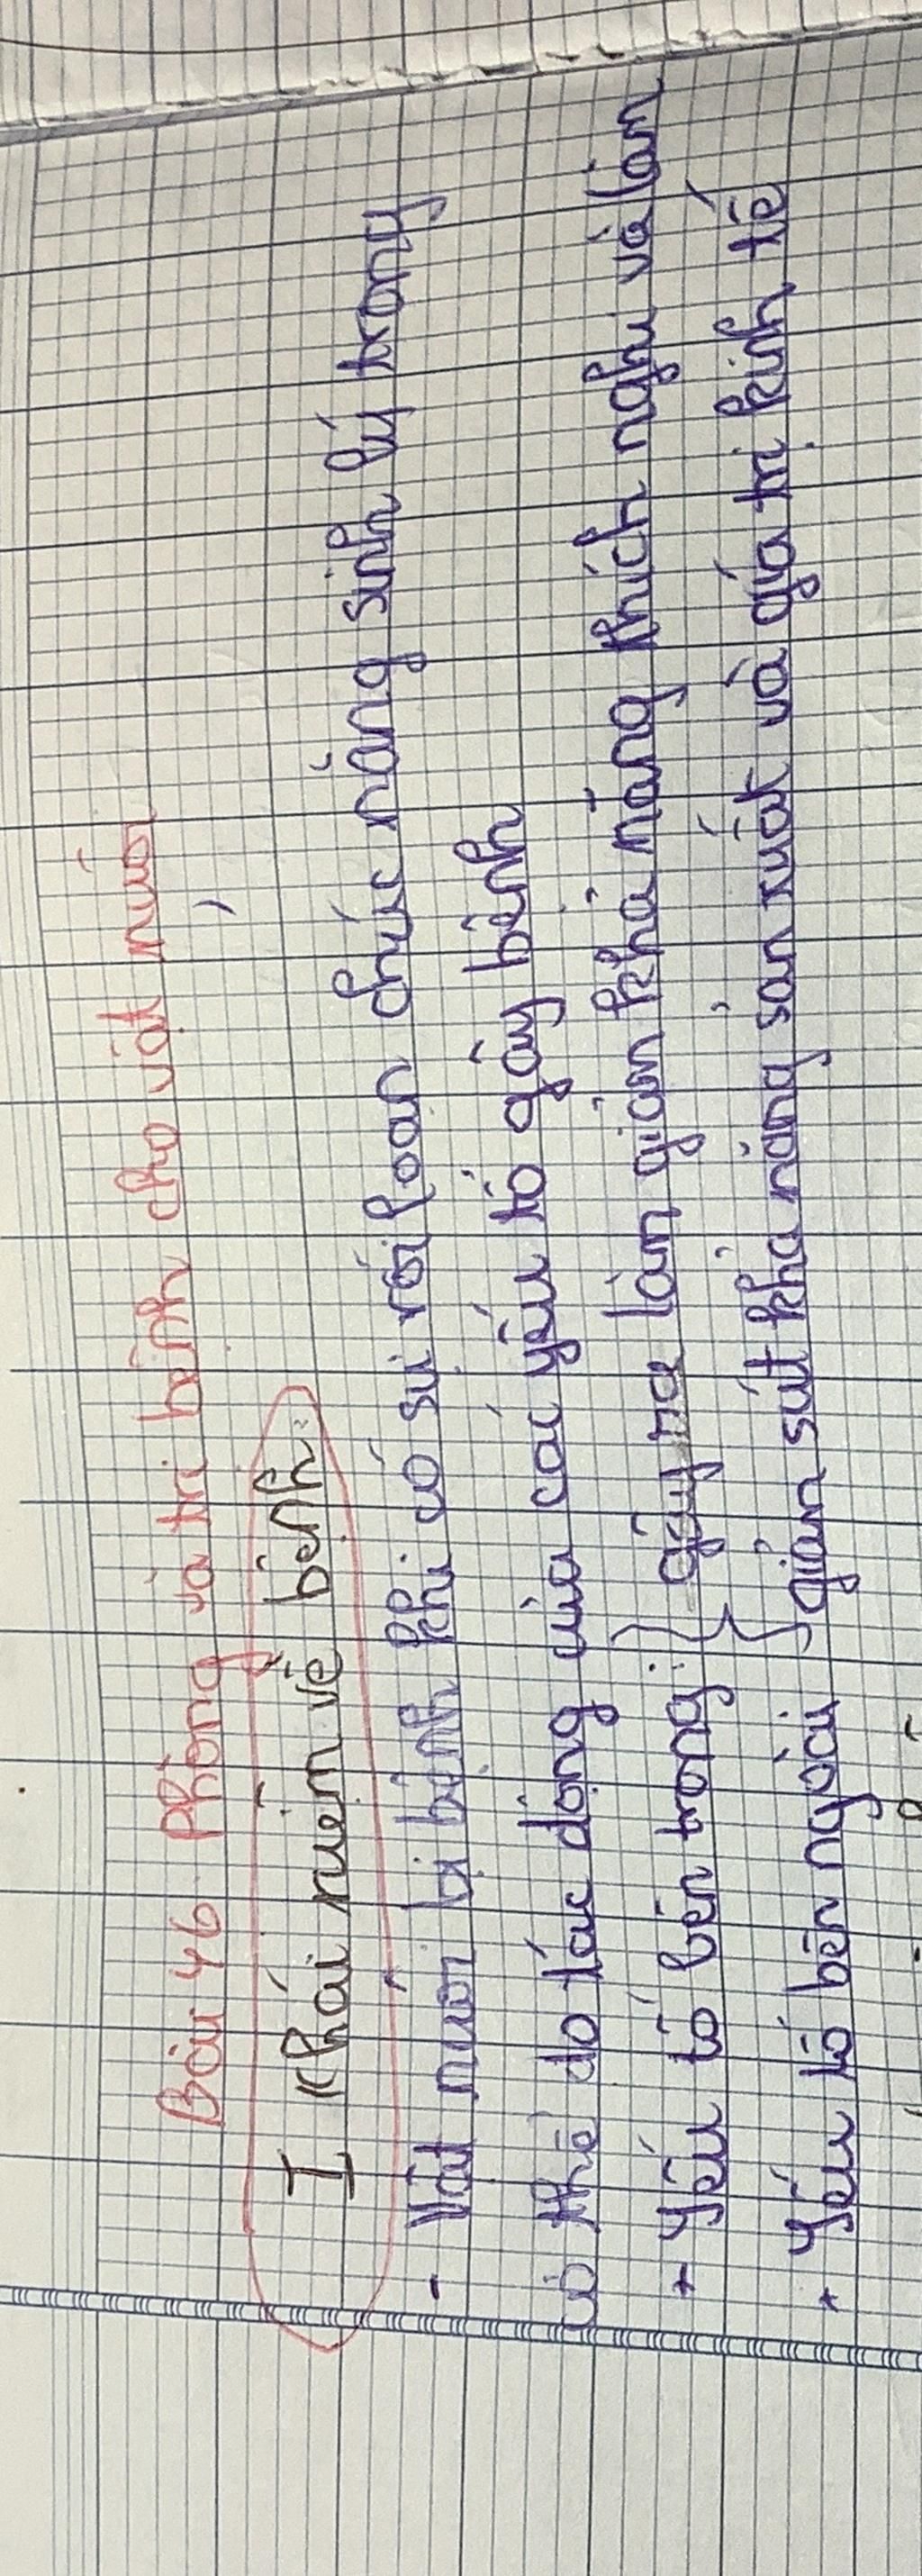 Bài 46 Phòng và trị bệnh cho vật nuôi
I Khái niệm về bệnh.
- Vật nuôi bị bệnh khi có sự rối loạn chức năng sinh lý trong
cơ thể do tác động của các yếu tố gây bệnh
+ Yếu tố bên trong : } gây ra làm giảm khả năng thích nghi và làm
+ Yếu tố bên ngoài } giảm sút khả năng sản xuất và giá trị kinh tế